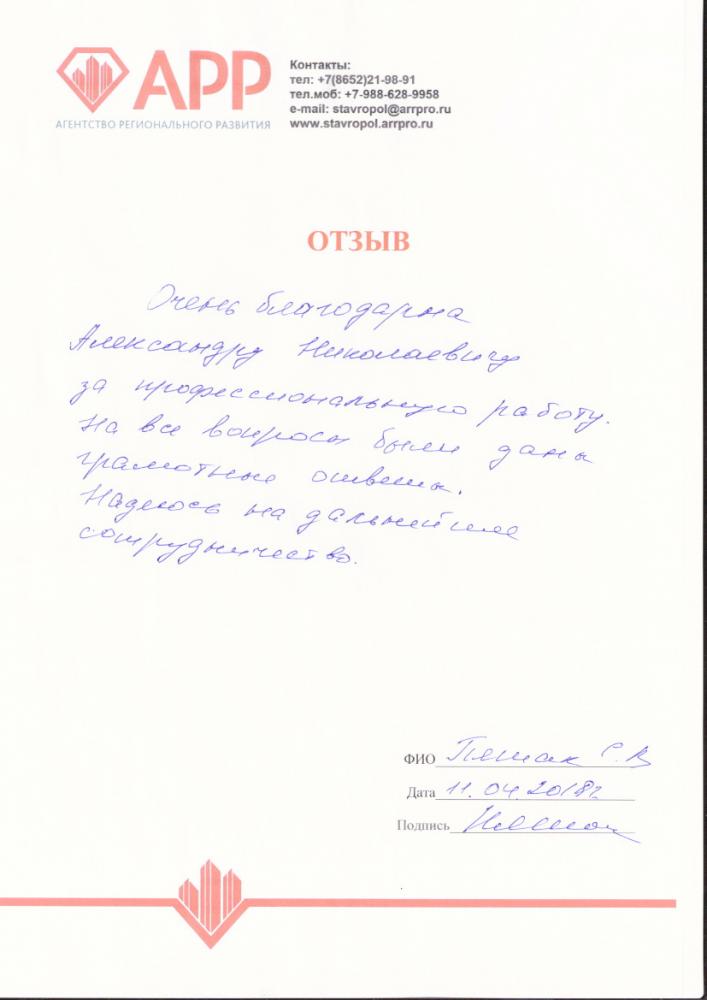 АРР
АГЕНТСТВО РЕГИОНАЛЬНОГО РАЗВИТИЯ
Контакты:
тел: +7(8652)21-98-91
тел.моб: +7-988-628-9958
e-mail: stavropol@arrpro.ru
www.stavropol.arrpro.ru
ОТЗЫВ
Очень благодарна
Александру Николаевичу
за профессиональную работу.
На все вопросы были даны
грамотные ответы.
Надеюсь на дальнейшее
сотрудничество.
ФИО С.В
Дата 11.04.2018г
Подпись